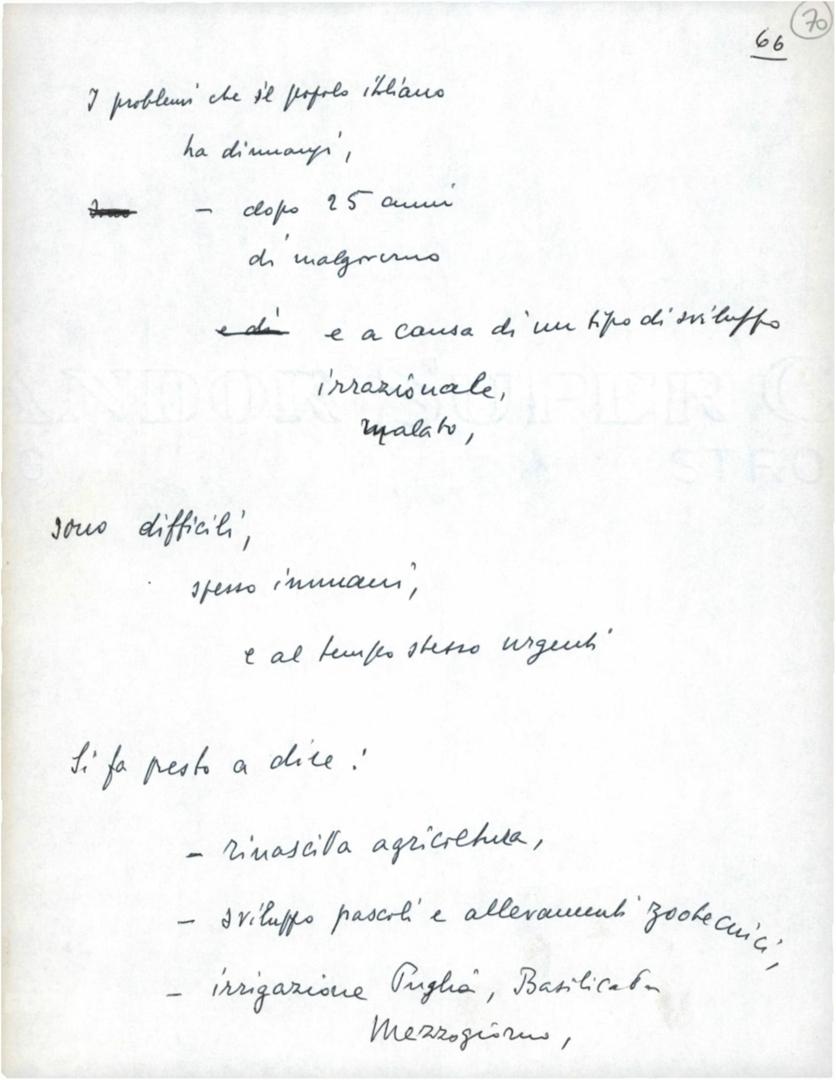 70
66
I problemi che il popolo italiano
ha dinnanzi,
- dopo 25 anni
di malgoverno
e di e a causa di un tipo di sviluppo
irrazionale,
malato,
sono difficili,
spesso immani,
e al tempo stesso urgenti
Si fa presto a dire:
- rinascita agricoltura,
- sviluppo pascoli e allevamenti zootecnici,
- irrigazione Puglia, Basilicata
Mezzogiorno,